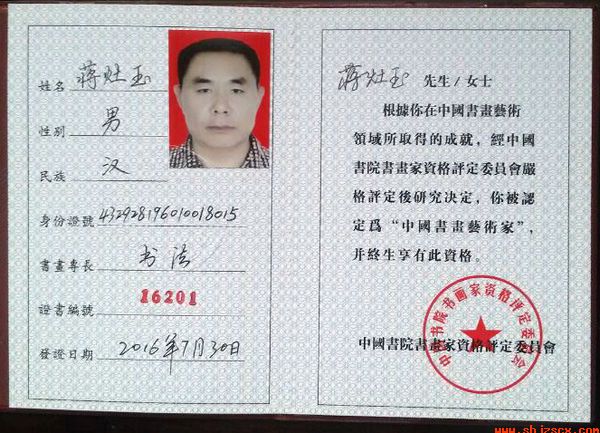 姓名 蒋灶玉
性别 男
民族 汉
身份證號 432928196010018015
書畫專長 书法
證書編號 16201
發證日期 2016年7月30日
蒋灶玉 先生/女士
根據你在中國書畫藝術
領域所取得的成就，經中國
書院書畫家資格評定委員會嚴
格評定後研究决定，你被認
定爲“中國書畫藝術家”，
并終生享有此資格。
中国书院书画家资格评定委员会
中國書院書畫家資格評定委員會
www.sbjzscx.com